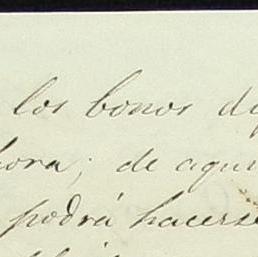 los bonos de
hora; de aqui
podrá hacerse